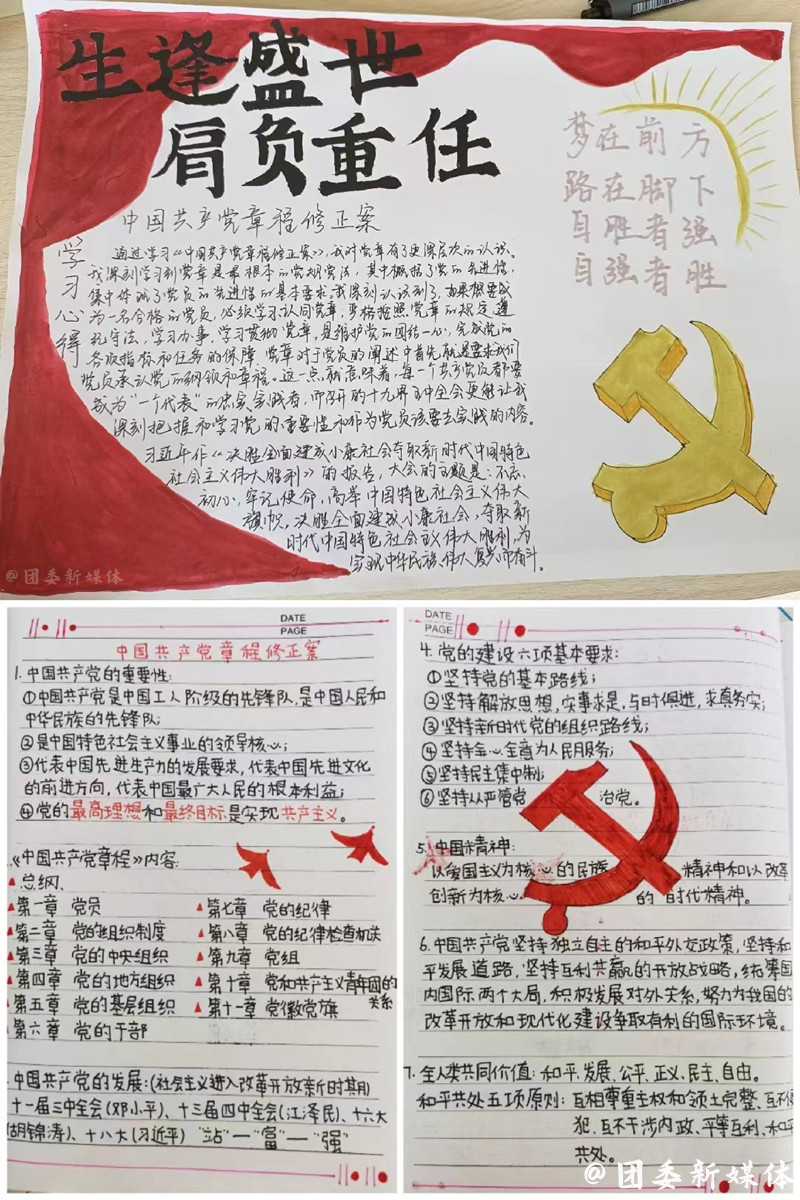 生逢盛世
肩负重任
中国共产党章程修正案
学习心得
通过学习《中国共产党章程修正案》,我对党章有了更深层次的认识。
我深刻学习到党章是最根本的党规党法,其中概括了党的先进性,
集中体现了党员的先进性的基本要求。我深刻认识到了,如果想要成
为一名合格的党员,必须学习认同党章,严格按照党章的规定遵
纪守法,学习办事,学习贯彻党章,是维护党的团结一心,完成党的
各项指标和任务的保障,党章对于党员的阐述中首先就是要求我们
党员承认党的纲领和章程。这一点就意味着,每一个共产党员都要
成为“一个代表”的忠实实践者,而召开的十九界五中全会更能让我
深刻把握和学习党的重要性和作为党员该要去实践的内容。
习近平作《决胜全面建成小康社会夺取新时代中国特色
社会主义伟大胜利》的报告,大会的主题是:不忘
初心,牢记使命,高举中国特色社会主义伟大
旗帜,决胜全面建成小康社会,夺取新
时代中国特色社会主义伟大胜利,为
实现中华民族伟大复兴而奋斗。
梦在前方
路在脚下
自胜者强
自强者胜
@团委新媒体
DATE
PAGE
中国共产党章程修正案
1.中国共产党的重要性:
①中国共产党是中国工人阶级的先锋队,是中国人民和
中华民族的先锋队;
②是中国特色社会主义事业的领导核心;
③代表中国先进生产力的发展要求,代表中国先进文化
的前进方向,代表中国最广大人民的根本利益;
④党的最高理想和最终目标是实现共产主义。
.《中国共产党章程》内容:
▲总纲、
▲第一章 党员 ▲第七章 党的纪律
▲第二章 党的组织制度 ▲第八章 党的纪律检查机关
▲第三章 党的中央组织 ▲第九章 党组
▲第四章 党的地方组织 ▲第十章 党和共产主义青年团的
关系
▲第五章 党的基层组织 ▲第十一章 党徽党旗
▲第六章 党的干部
.中国共产党的发展:(社会主义进入改革开放新时其月)
十一届三中全会(邓小平)、十三届四中全会(江泽民)、十六大
(胡锦涛)、十八大(习近平) “站”—“富”—“强”
DATE
PAGE
4.党的建设六项基本要求:
①坚持党的基本路线;
②坚持解放思想,实事求是,与时俱进,求真务实;
③坚持新时代党的组织路线;
④坚持全心全意为人民服务;
⑤坚持民主集中制;
⑥坚持从严管党 治党。
5.中国精神:
以爱国主义为核心的民族 精神和以改革
创新为核心 的时代精神。
6.中国共产党坚持独立自主的和平外交政策,坚持和
平发展道路,坚持互利共赢的开放战略,统筹国
内国际两个大局,积极发展对外关系,努力为我国的
改革开放和现代化建设争取有利的国际环境。
7.全人类共同价值:和平、发展、公平、正义、民主、自由。
和平共处五项原则:互相尊重主权和领土完整、互不侵
犯、互不干涉内政、平等互利、和平
共处。
@团委新媒体